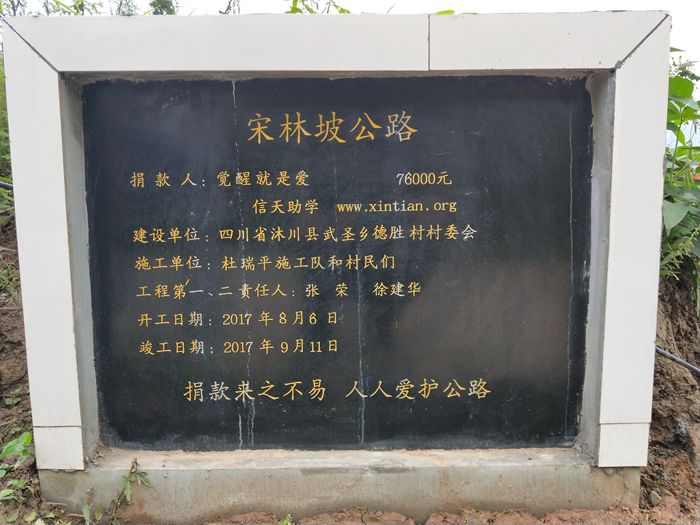 宋林坡公路
捐款人：觉醒就是爱 76000元
信天助学 www.xintian.org
建设单位：四川省沐川县武圣乡德胜村村委会
施工单位：杜瑞平施工队和村民们
工程第一、二责任人：张 荣 徐建华
开工日期：2017年8月6日
竣工日期：2017年9月11日
捐款来之不易 人人爱护公路